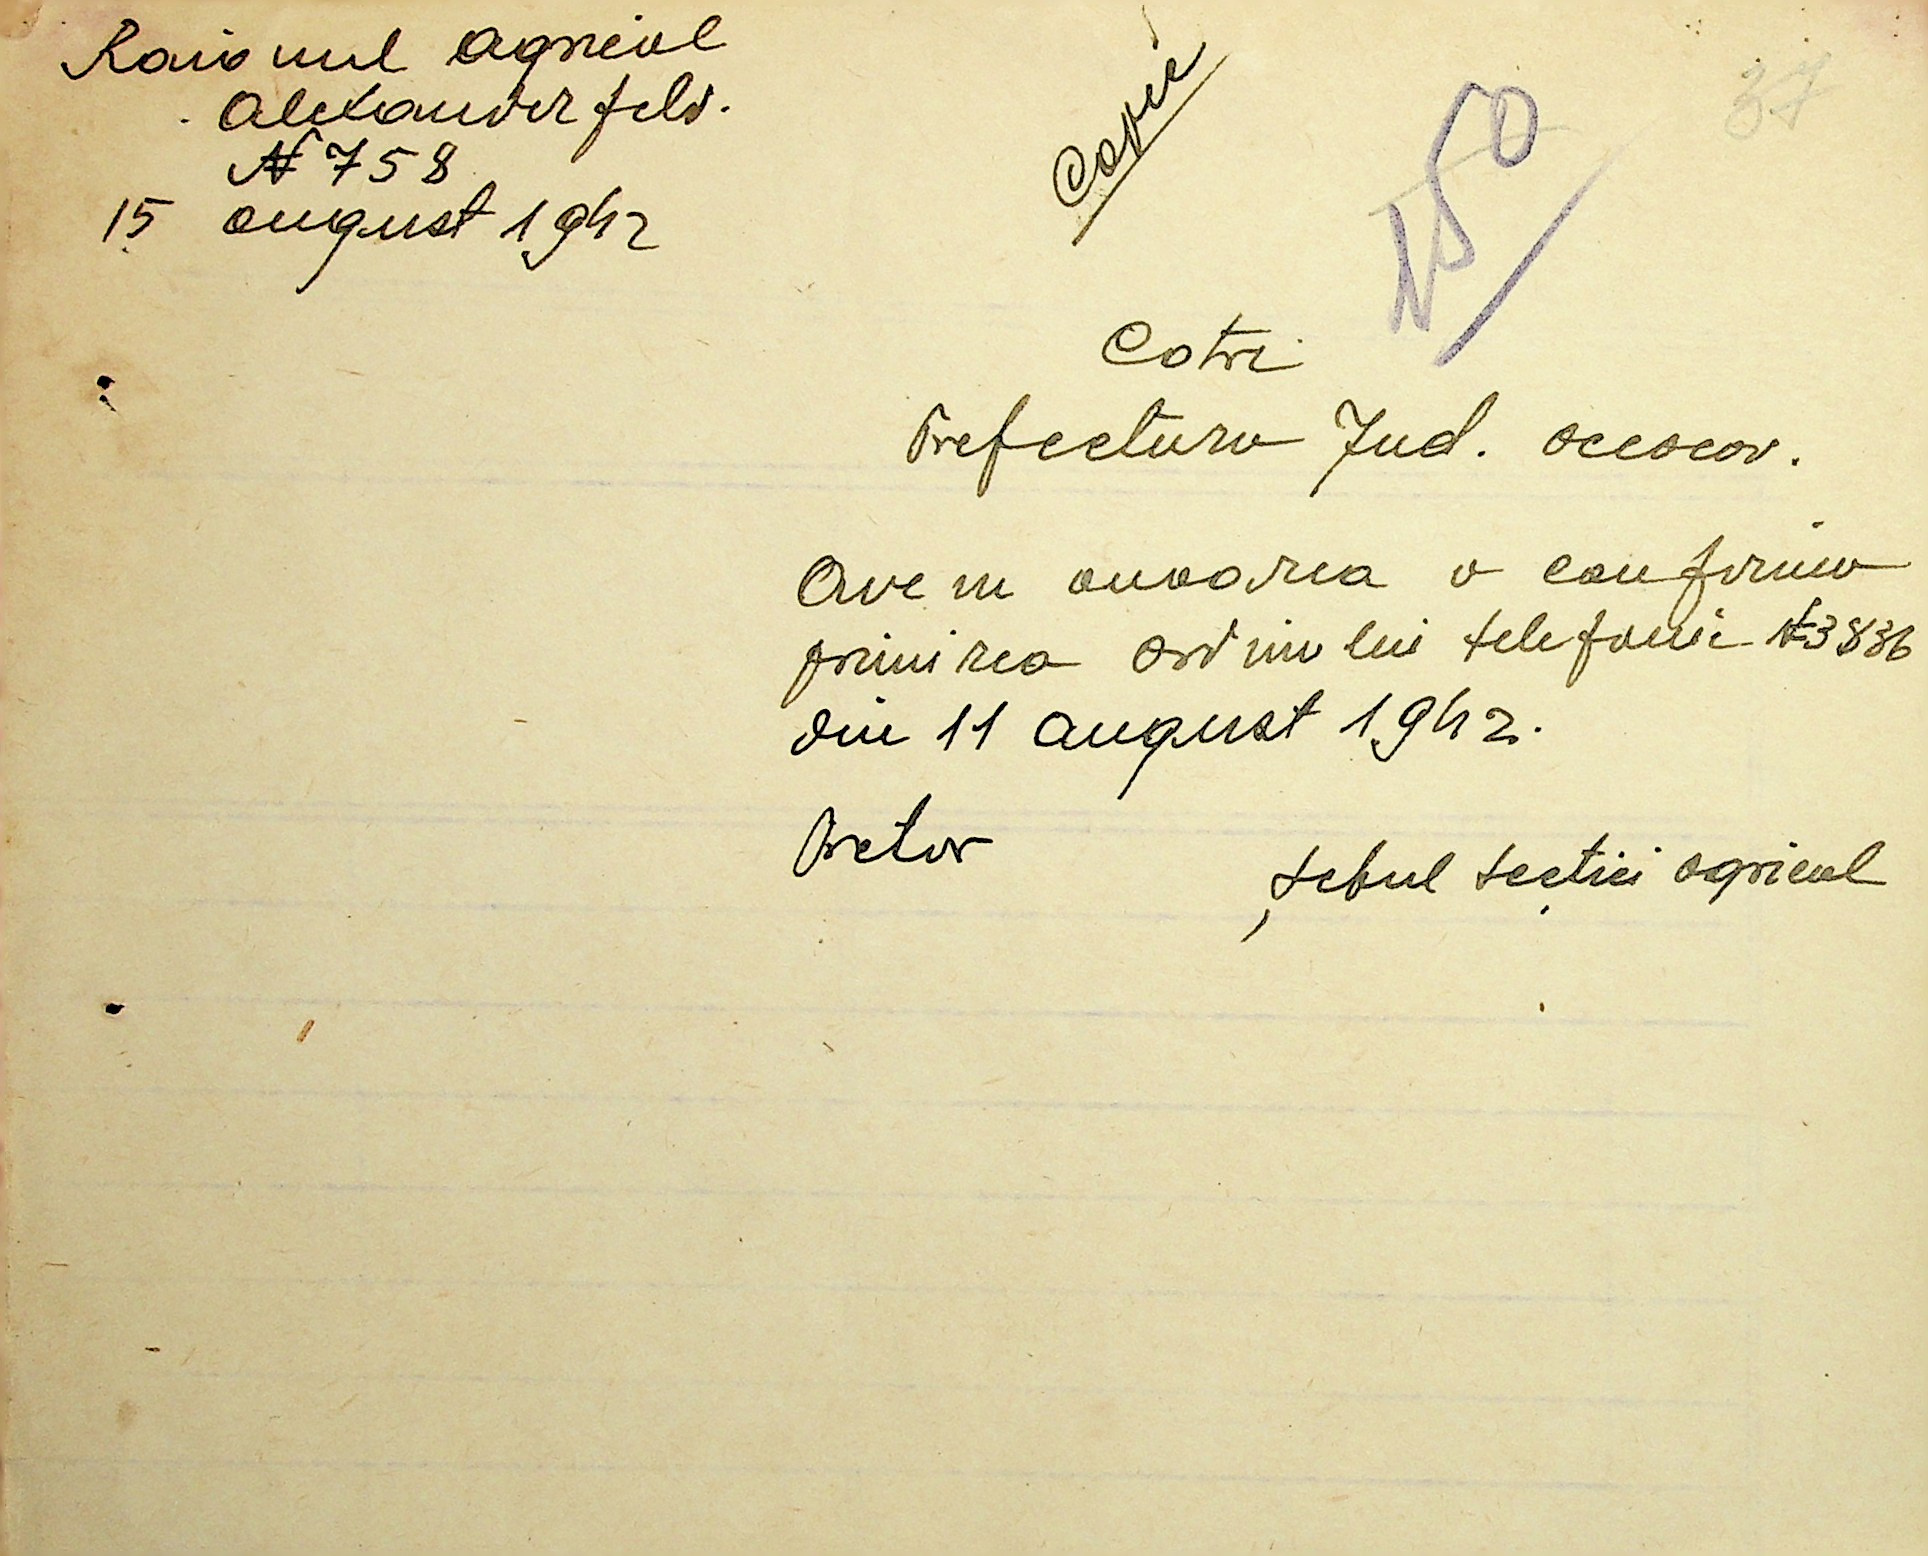 Raionul agricol
Alexanderfeld.
N 758
15 august 1942
Copie
150
37
Cotre
Prefectura Jud. Oceacov.
Avem onoarea a confirma
primirea ordinului telefonic N 3836
din 11 august 1942.
Pretor
Șeful secției agricol